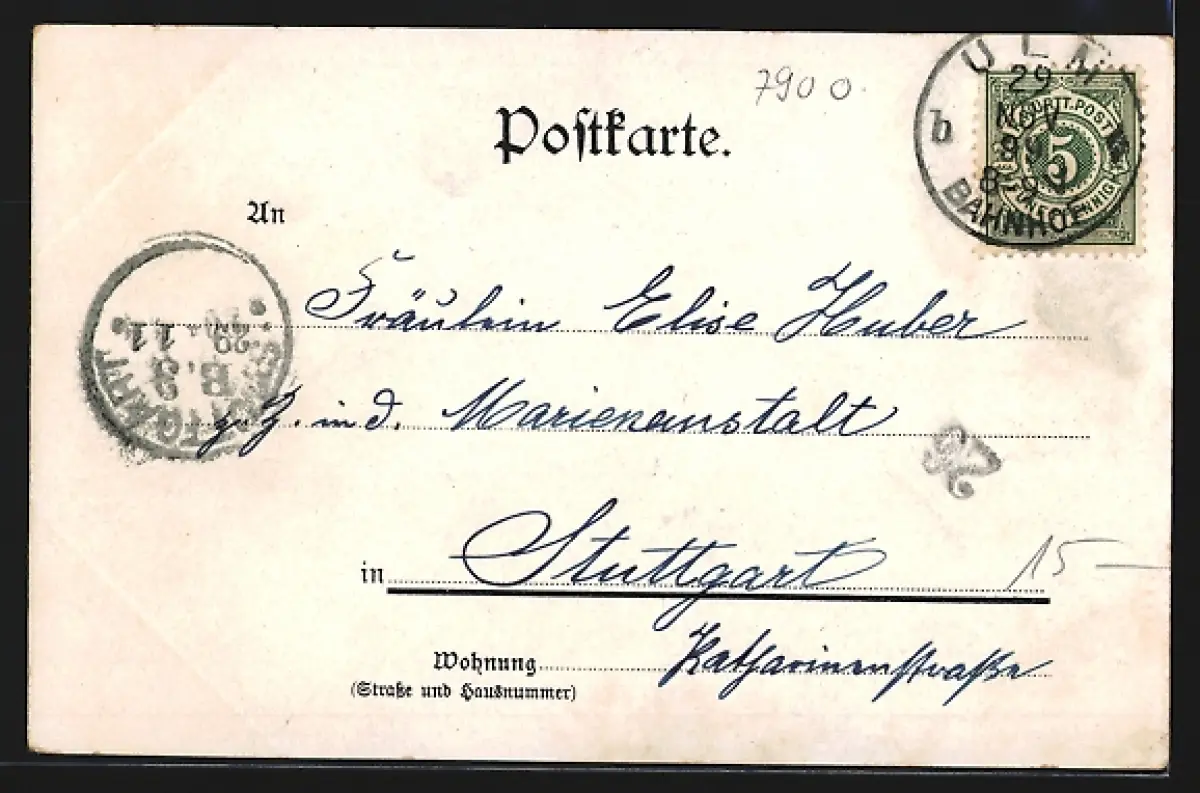 7900
Postkarte.
ULM
29
NOV
8-9 V
b
BAHNHOF
WÜRTT. POST
5
An
Fräulein Elise Huber
z. Z. in d. Marienanstalt
STUTTGART
B.3
29 11
in Stuttgart
15-
Wohnung Katharinenstraße
(Straße und Hausnummer)